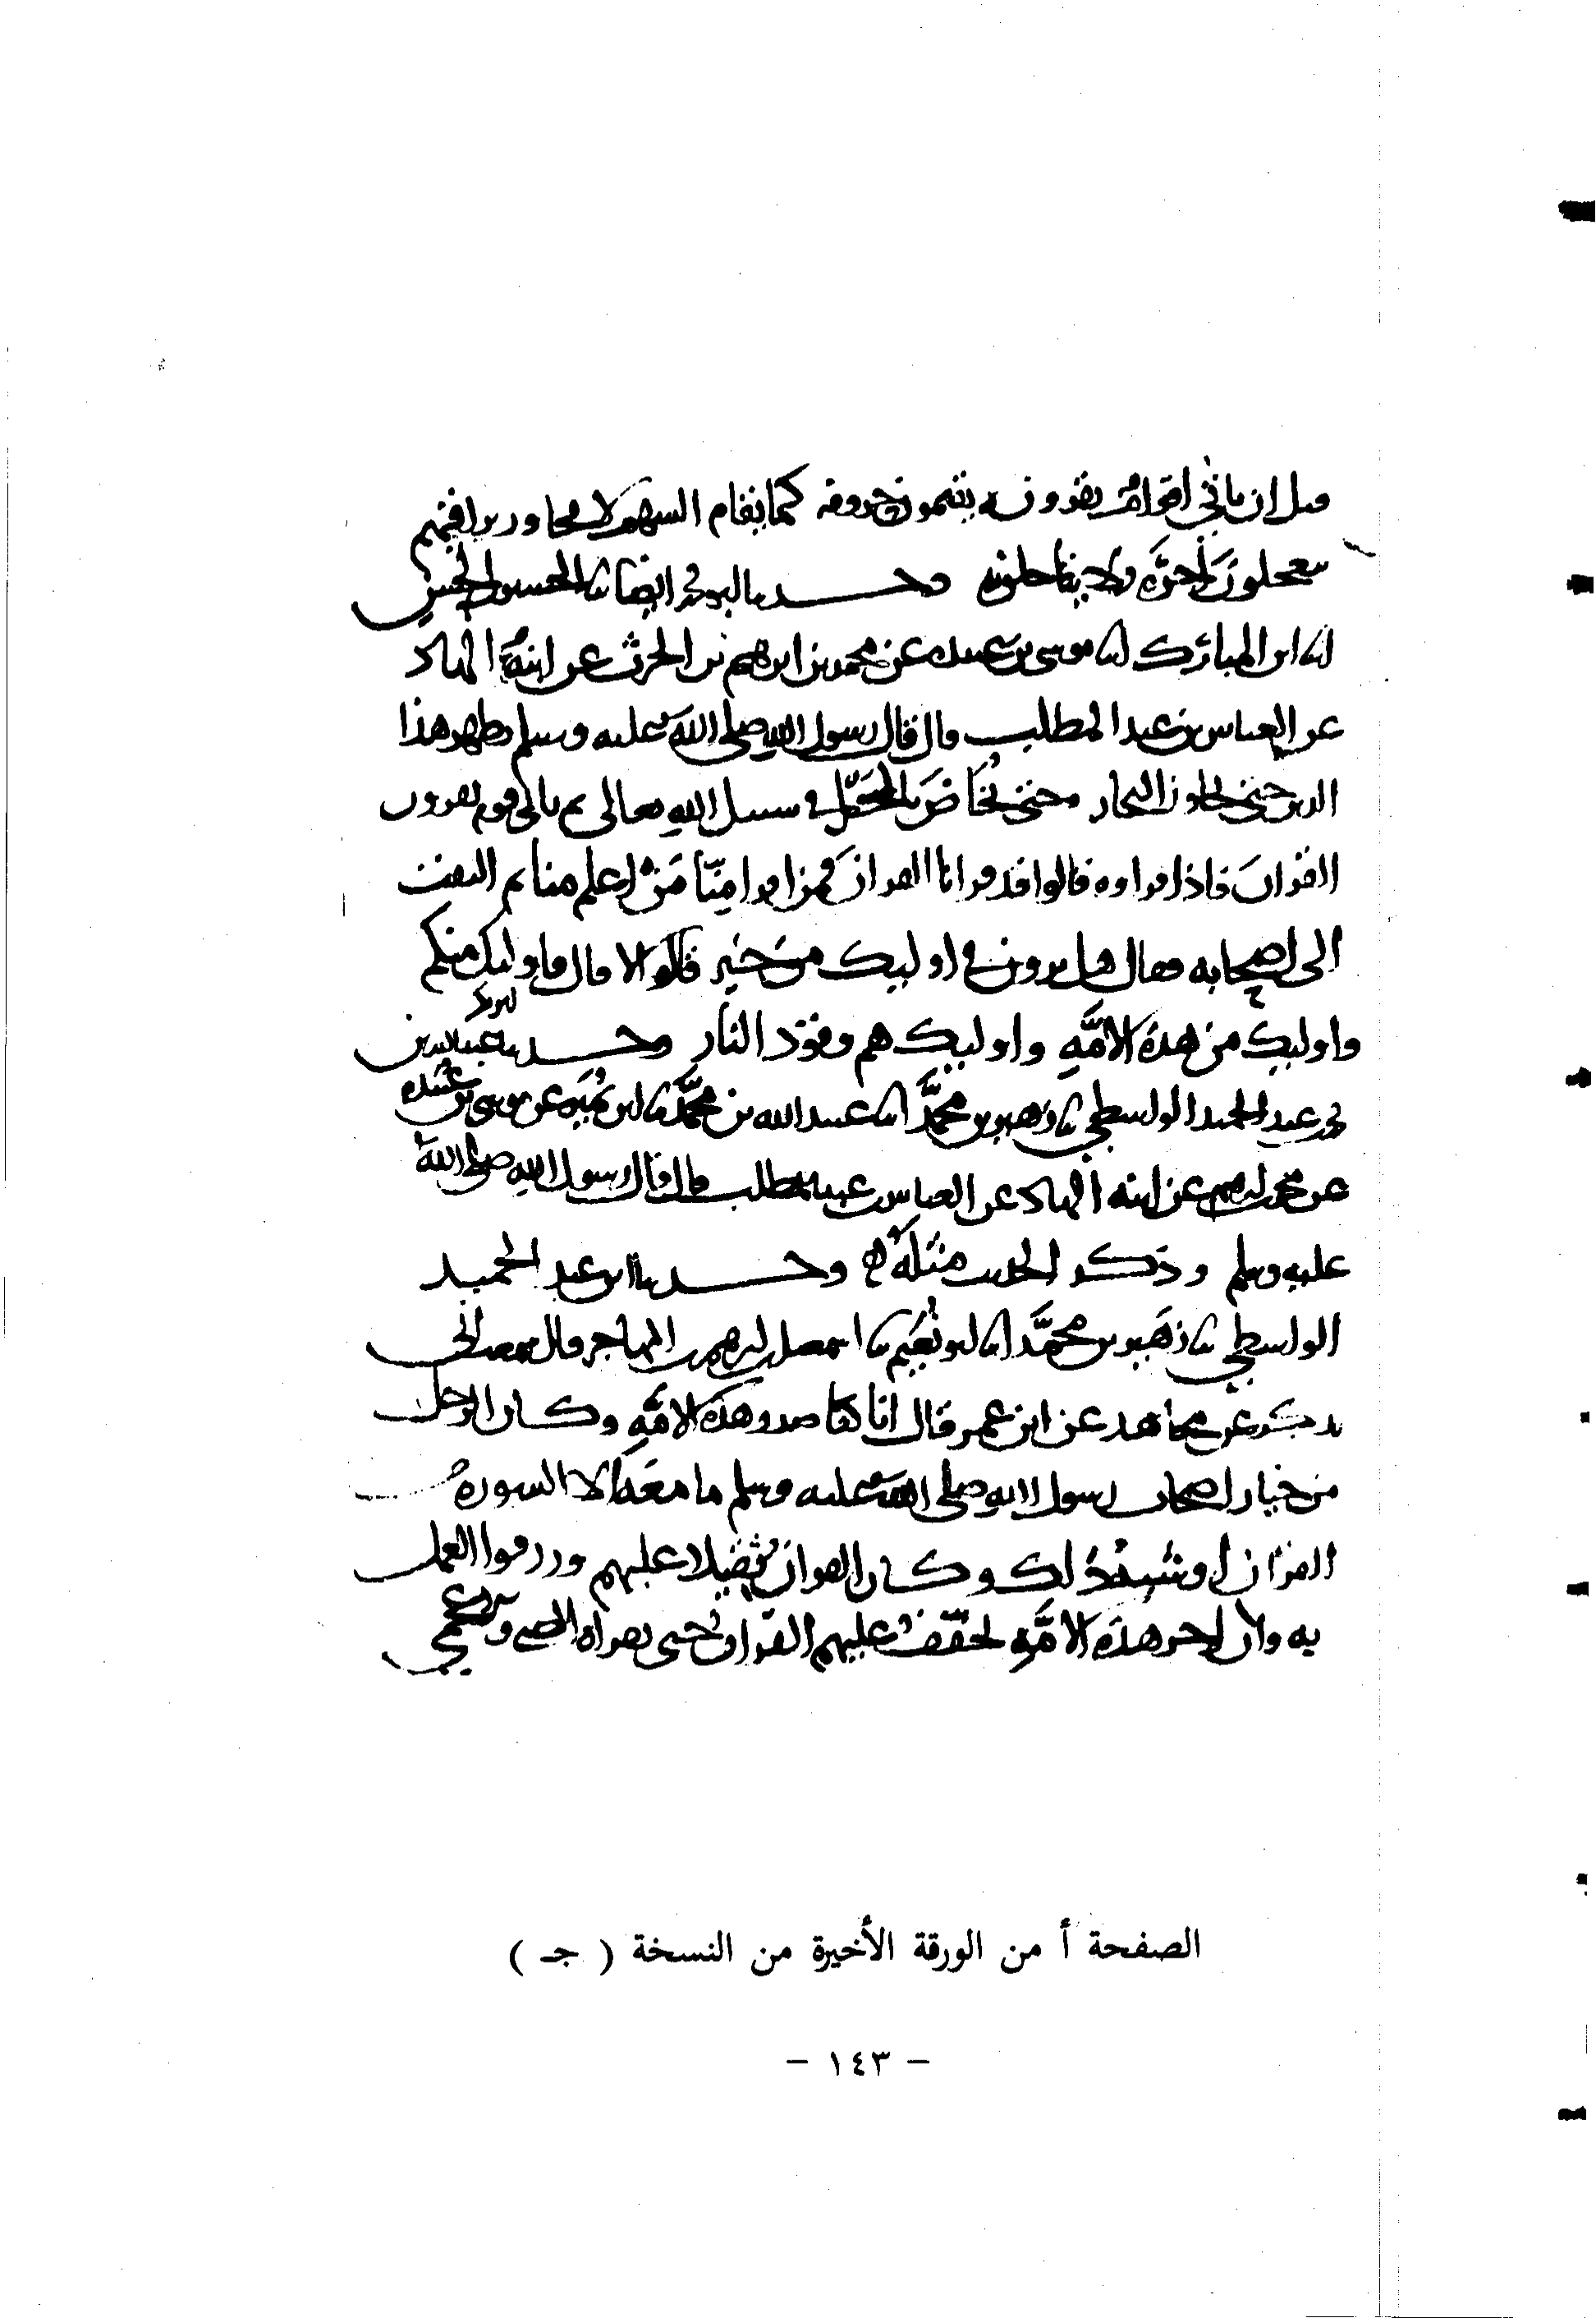 قبل ان ياتي اقوام يقرونه يقيمون حروفه كما يقام السهم لا يجاوز تراقيهم
يتعجلون اجره ولا يتاجلونه وحدثنا الفريابي ايضا ثنا الحسين بن الحسن
انا ابن المبارك انا موسى بن عبيده عن محمد بن ابرهيم بن الحرث عن ابنة الهاد
عن العباس بن عبد المطلب قال قال رسول الله صلى الله عليه وسلم يظهر هذا
الدين حتى يجاوز البحار وحتى تخاض بالخيل في سبيل الله تعالى ثم ياتي قوم يقرون
القران فاذا قراوه قالوا قد قرانا القران فمن اقرا منا من اعلم منا ثم التفت
الى اصحابه فقال هل ترون في اوليك من خير قالوا لا قال فاوليك منكم
واوليك من هذه الامه واوليك هم وقود النار وحدثنا عبد الله بن
محمد بن عبد الحميد الواسطي ثنا زهير بن محمد انا عبيد الله بن محمد عن موسى بن عبيده
عن محمد بن ابرهيم عن ابنة الهاد عن العباس بن عبد المطلب قال قال رسول الله صلى الله
عليه وسلم وذكر الحديث مثله وحدثنا ابن عبد الحميد
الواسطي ثنا زهير بن محمد انا ابو نعيم ثنا اسمعيل بن ابرهيم بن المهاجر قال سمعت ابي
يذكر عن مجاهد عن ابن عمر قال انا كنا صدر هذه الامه وكان الرجل
من خيار اصحاب رسول الله صلى الله عليه وسلم ما معه الا السورة من
القران او شبه ذلك وكان القران ثقيلا عليهم ورزقوا العمل
به وان اخر هذه الامه يخفف عليهم القران حتى يقراه الصبي والاعجمي
الصفحة أ من الورقة الأخيرة من النسخة ( جـ )
– ١٤٣ –